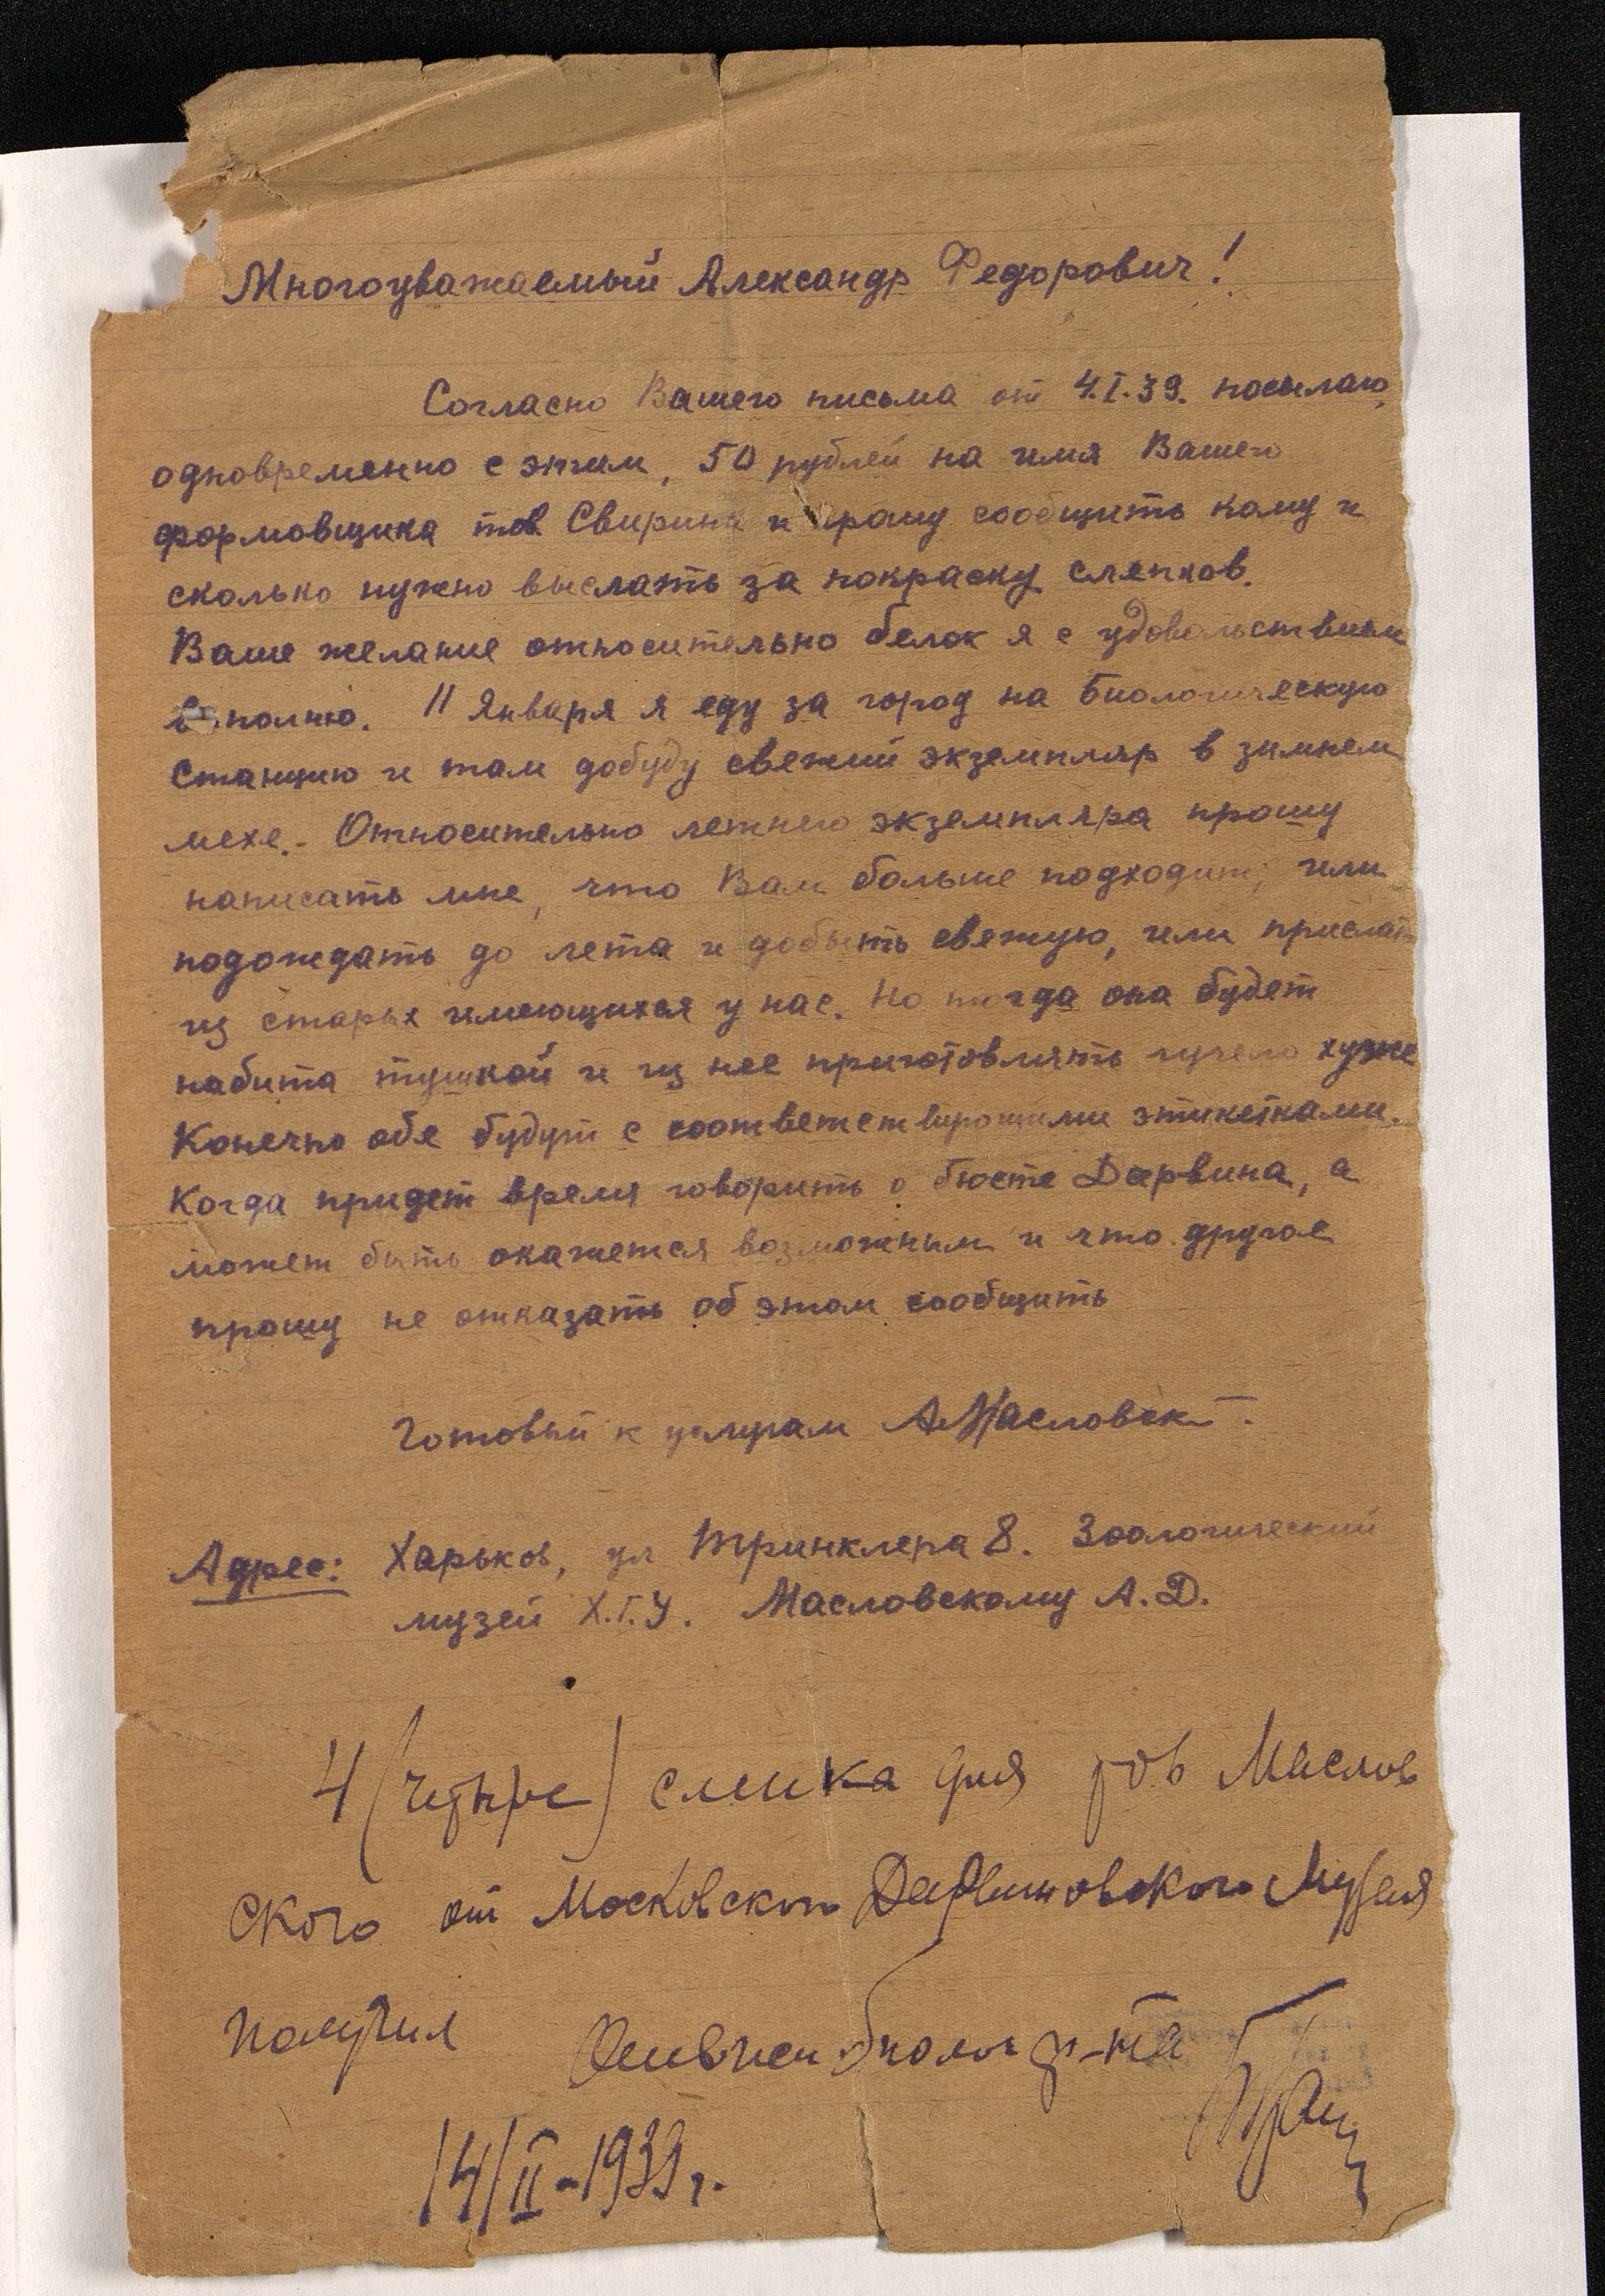 Многоуважаемый Александр Федорович!
Согласно Вашего письма от 4.I.39. посылаю,
одновременно с этим, 50 рублей на имя Вашего
формовщика тов Свирина и прошу сообщить кому и
сколько нужно выслать за покраску слепков.
Ваше желание относительно белок я с удовольствием
выполню. 11 Января я еду за город на Биологическую
Станцию и там добуду свежий экземпляр в зимнем
мехе.- Относительно летнего экземпляра прошу
написать мне, что Вам больше подходит; или
подождать до лета и добыть свежую, или прислать
из старых имеющихся у нас. Но тогда она будет
набита тушкой и из нее приготовлять чучело хуже
Конечно обе будут с соответствующими этикетками.
Когда придет время говорить о бюсте Дарвина, а
может быть окажется возможным и что другое
прошу не отказать об этом сообщить
Готовый к услугам АМасловский.
Адрес: Харьков, ул Тринклера 8. Зоологический
музей Х.Г.У. Масловскому А.Д.
4 (четыре) слепка для тов Маслов
ского от Московского Дарвиновского Музея
получил биолог ф-та
14/II-1939г.